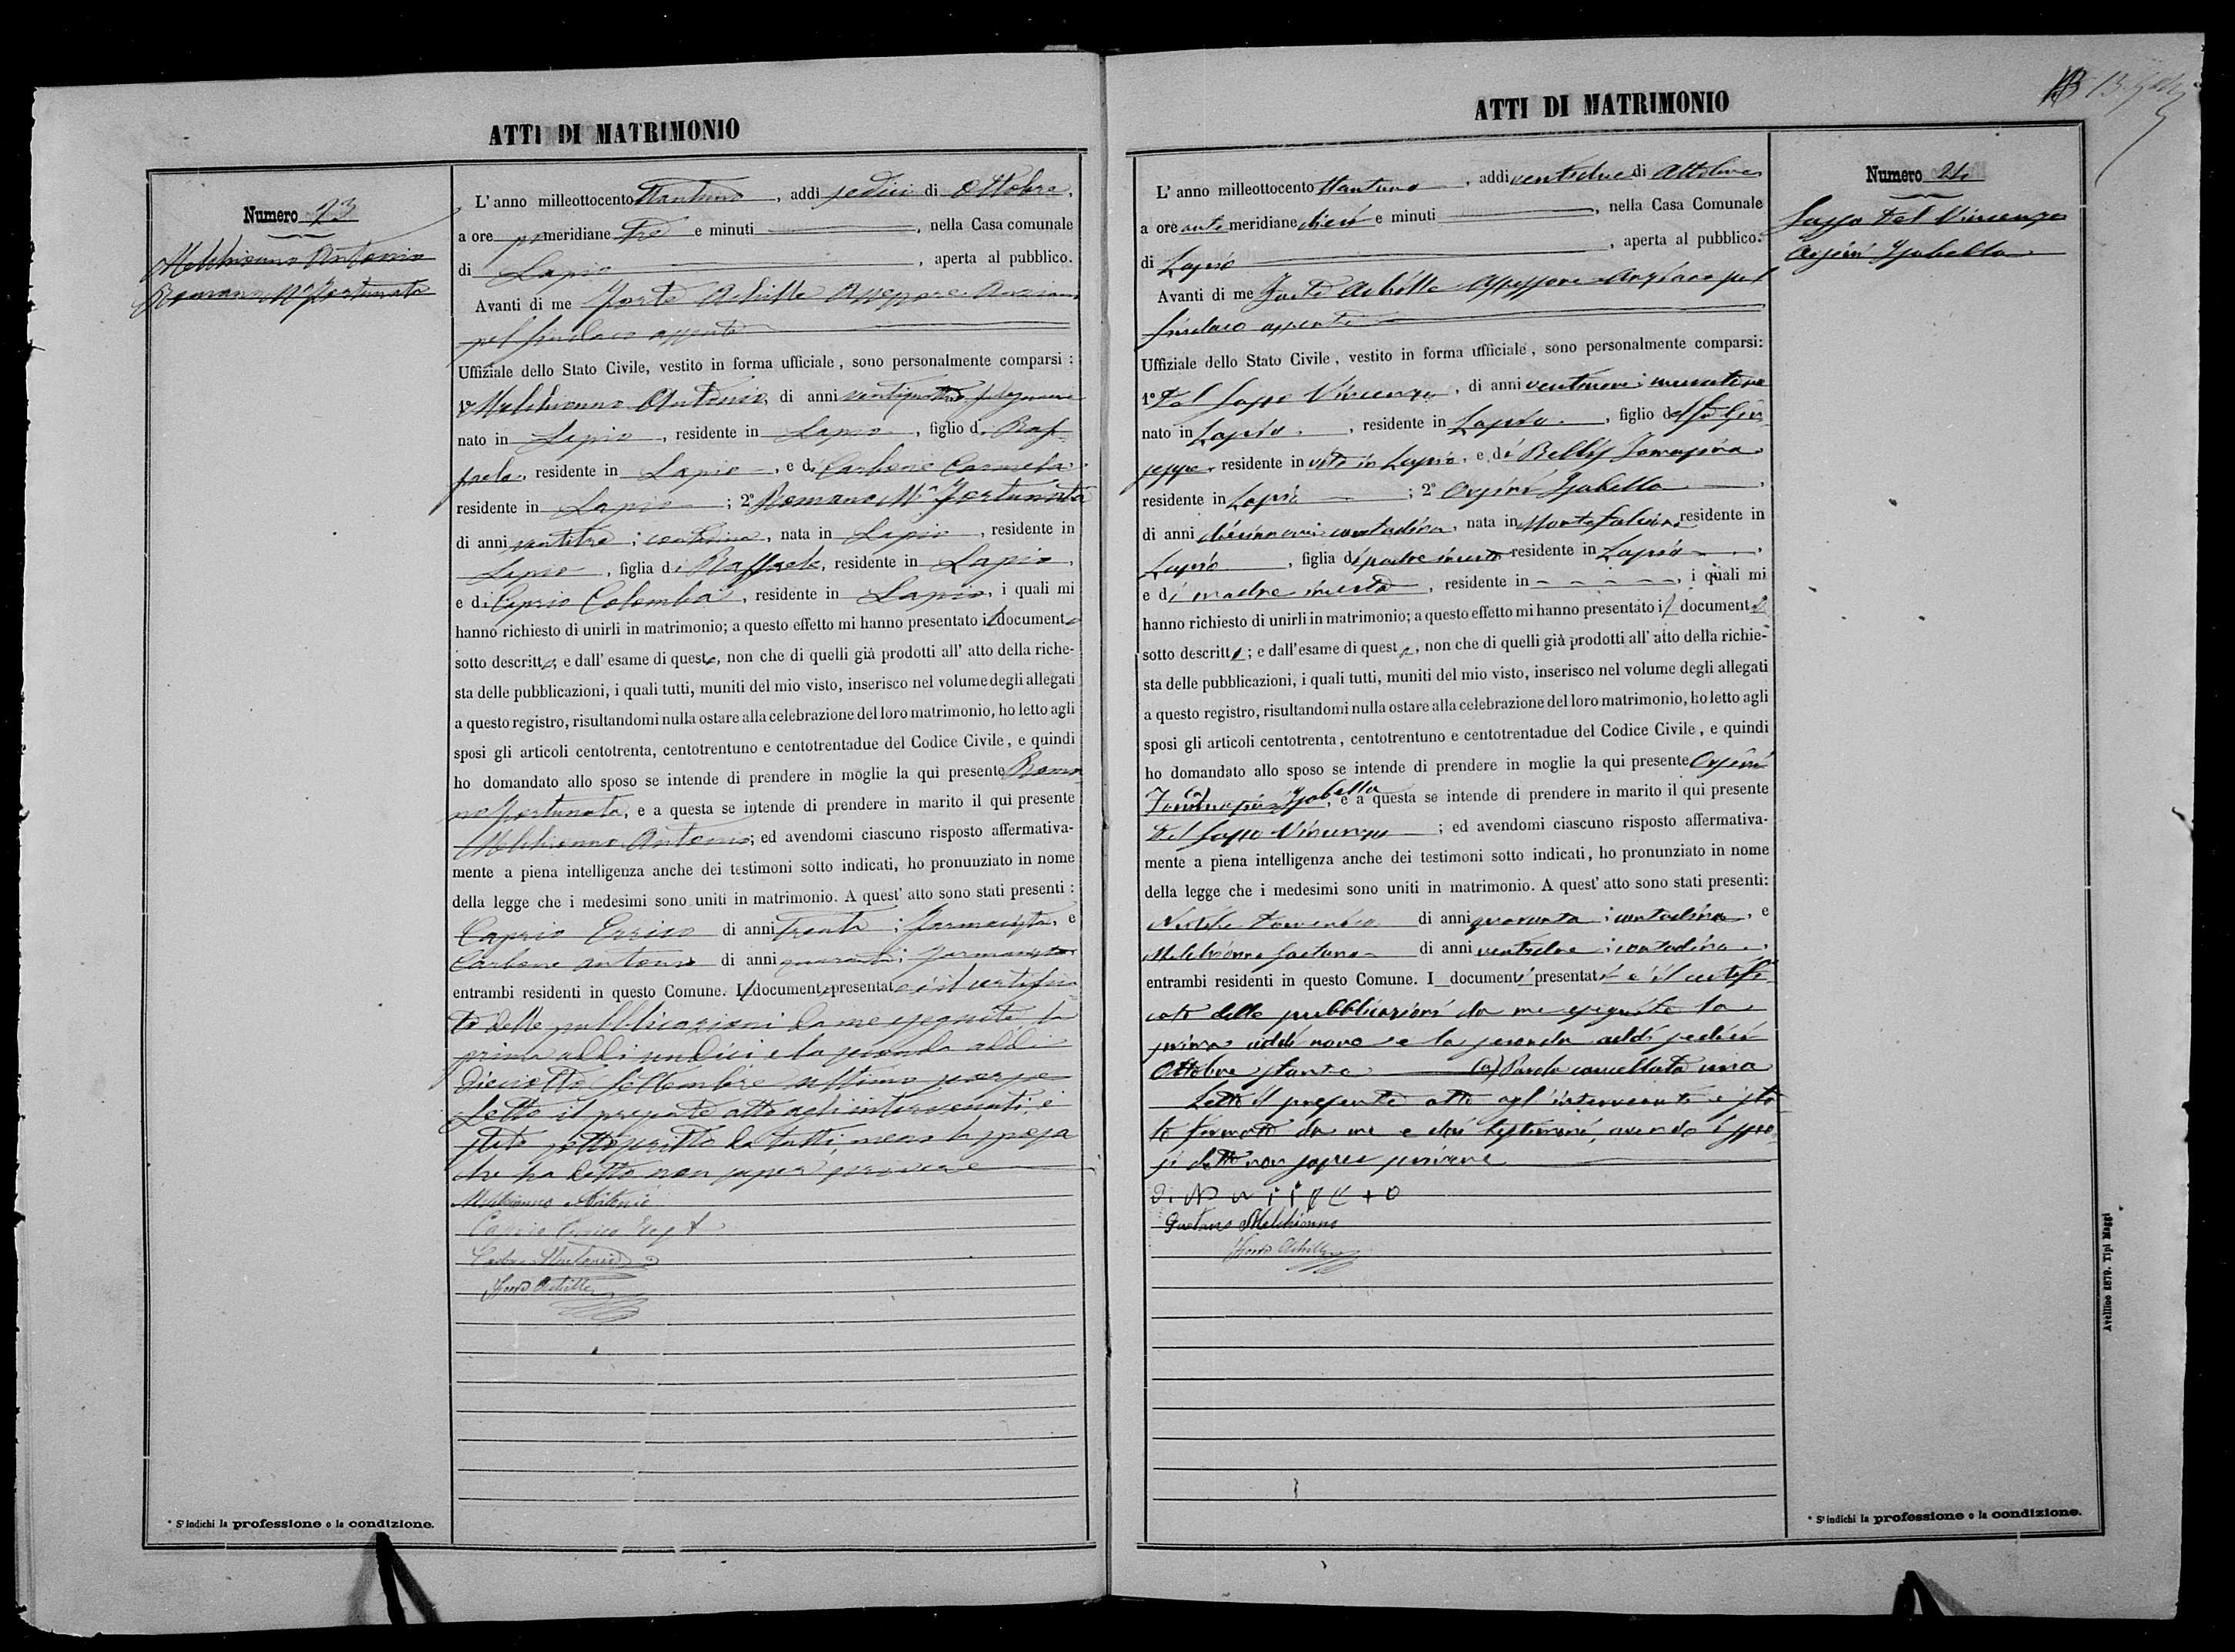 ATTI DI MATRIMONIO
Numero 23
Melchionno Antonio
Romano Ma Fortunata
L' anno milleottocento ttantuno, addi sedici di Ottobre,
a ore pmeridiane tre e minuti , nella Casa comunale
di Lapio , aperta al pubblico.
Avanti di me Forte Achille Assessore Anziano
pel Sindaco assente
Uffiziale dello Stato Civile, vestito in forma ufficiale, sono personalmente comparsi :
1º Melchionno Antonio, di anni ventiquattro falegname
nato in Lapio, residente in Lapio, figlio di Raf-
faele, residente in Lapio, e di Carbone Carmela
residente in Lapio ; 2º Romano Ma Fortunata
di anni ventitre ; contadina, nata in Lapio, residente in
Lapio, figlia di Raffaele, residente in Lapio,
e di Caprio Colomba, residente in Lapio, i quali mi
hanno richiesto di unirli in matrimonio; a questo effetto mi hanno presentato il documento
sotto descritto; e dall' esame di questo, non che di quelli già prodotti all' atto della riche-
sta delle pubblicazioni, i quali tutti, muniti del mio visto, inserisco nel volume degli allegati
a questo registro, risultandomi nulla ostare alla celebrazione del loro matrimonio, ho letto agli
sposi gli articoli centotrenta, centotrentuno e centotrentadue del Codice Civile, e quindi
ho domandato allo sposo se intende di prendere in moglie la qui presente Roma
no Fortunata, e a questa se intende di prendere in marito il qui presente
Melchionno Antonio; ed avendomi ciascuno risposto affermativa-
mente a piena intelligenza anche dei testimoni sotto indicati, ho pronunziato in nome
della legge che i medesimi sono uniti in matrimonio. A quest' atto sono stati presenti :
Caprio Enrico di anni trenta ; farmacista, e
Carbone Antonio di anni quaranta ; farmacista
entrambi residenti in questo Comune. Il documento presentato è il certifica
to delle pubblicazioni da me eseguite la
prima addi undici e la seconda addi
dieciotto Settembre ultimo scorso
Letto il presente atto agli intervenuti, è
stato sottoscritto da tutti, meno la sposa
che ha detto non saper scrivere
Melchionno Antonio
Caprio Enrico
Carbone Antonio
Forte Achille
* S'indichi la professione o la condizione.
ATTI DI MATRIMONIO
Numero 24
Sasso Del Vincenzo
Orsini Isabella
L' anno milleottocento ttantuno, addi ventidue di Ottobre
a ore antemeridiane dieci e minuti , nella Casa Comunale
di Lapio , aperta al pubblico.
Avanti di me Forte Achille Assessore Anziano pel
Sindaco assente
Uffiziale dello Stato Civile, vestito in forma ufficiale, sono personalmente comparsi:
1º Del Sasso Vincenzo, di anni ventinove ; muratore
nato in Lapio, residente in Lapio, figlio del fu Giu
seppe, residente in vita in Lapio, e di Bellis
residente in Lapio ; 2º Orsini Isabella
di anni diecinnove contadina, nata in Montefalcione residente in
Lapio, figlia di padre incerto residente in Lapio,
e di madre incerta, residente in , i quali mi
hanno richiesto di unirli in matrimonio; a questo effetto mi hanno presentato il documento
sotto descritto ; e dall' esame di questo, non che di quelli già prodotti all' atto della richie-
sta delle pubblicazioni, i quali tutti, muniti del mio visto, inserisco nel volume degli allegati
a questo registro, risultandomi nulla ostare alla celebrazione del loro matrimonio, ho letto agli
sposi gli articoli centotrenta, centotrentuno e centotrentadue del Codice Civile, e quindi
ho domandato allo sposo se intende di prendere in moglie la qui presente Orsini
(a) Isabella, e a questa se intende di prendere in marito il qui presente
Del Sasso Vincenzo ; ed avendomi ciascuno risposto affermativa-
mente a piena intelligenza anche dei testimoni sotto indicati, ho pronunziato in nome
della legge che i medesimi sono uniti in matrimonio. A quest' atto sono stati presenti:
Domenico di anni quaranta ; contadino, e
Melchionno Gaetano di anni ventidue ; contadino,
entrambi residenti in questo Comune. I documenti presentati è il certifi
cato delle pubblicazioni da me eseguite la
prima addi nove e la seconda addi sedici
Ottobre stante (a) Parola cancellata una
Letto il presente atto agl' intervenuti è sta
to firmato da me e dai testimoni, avendo i spo
si detto non saper scrivere
Gaetano Melchionno
Forte Achille
* S'indichi la professione o la condizione.
Avellino 1879. Tipi Maggi